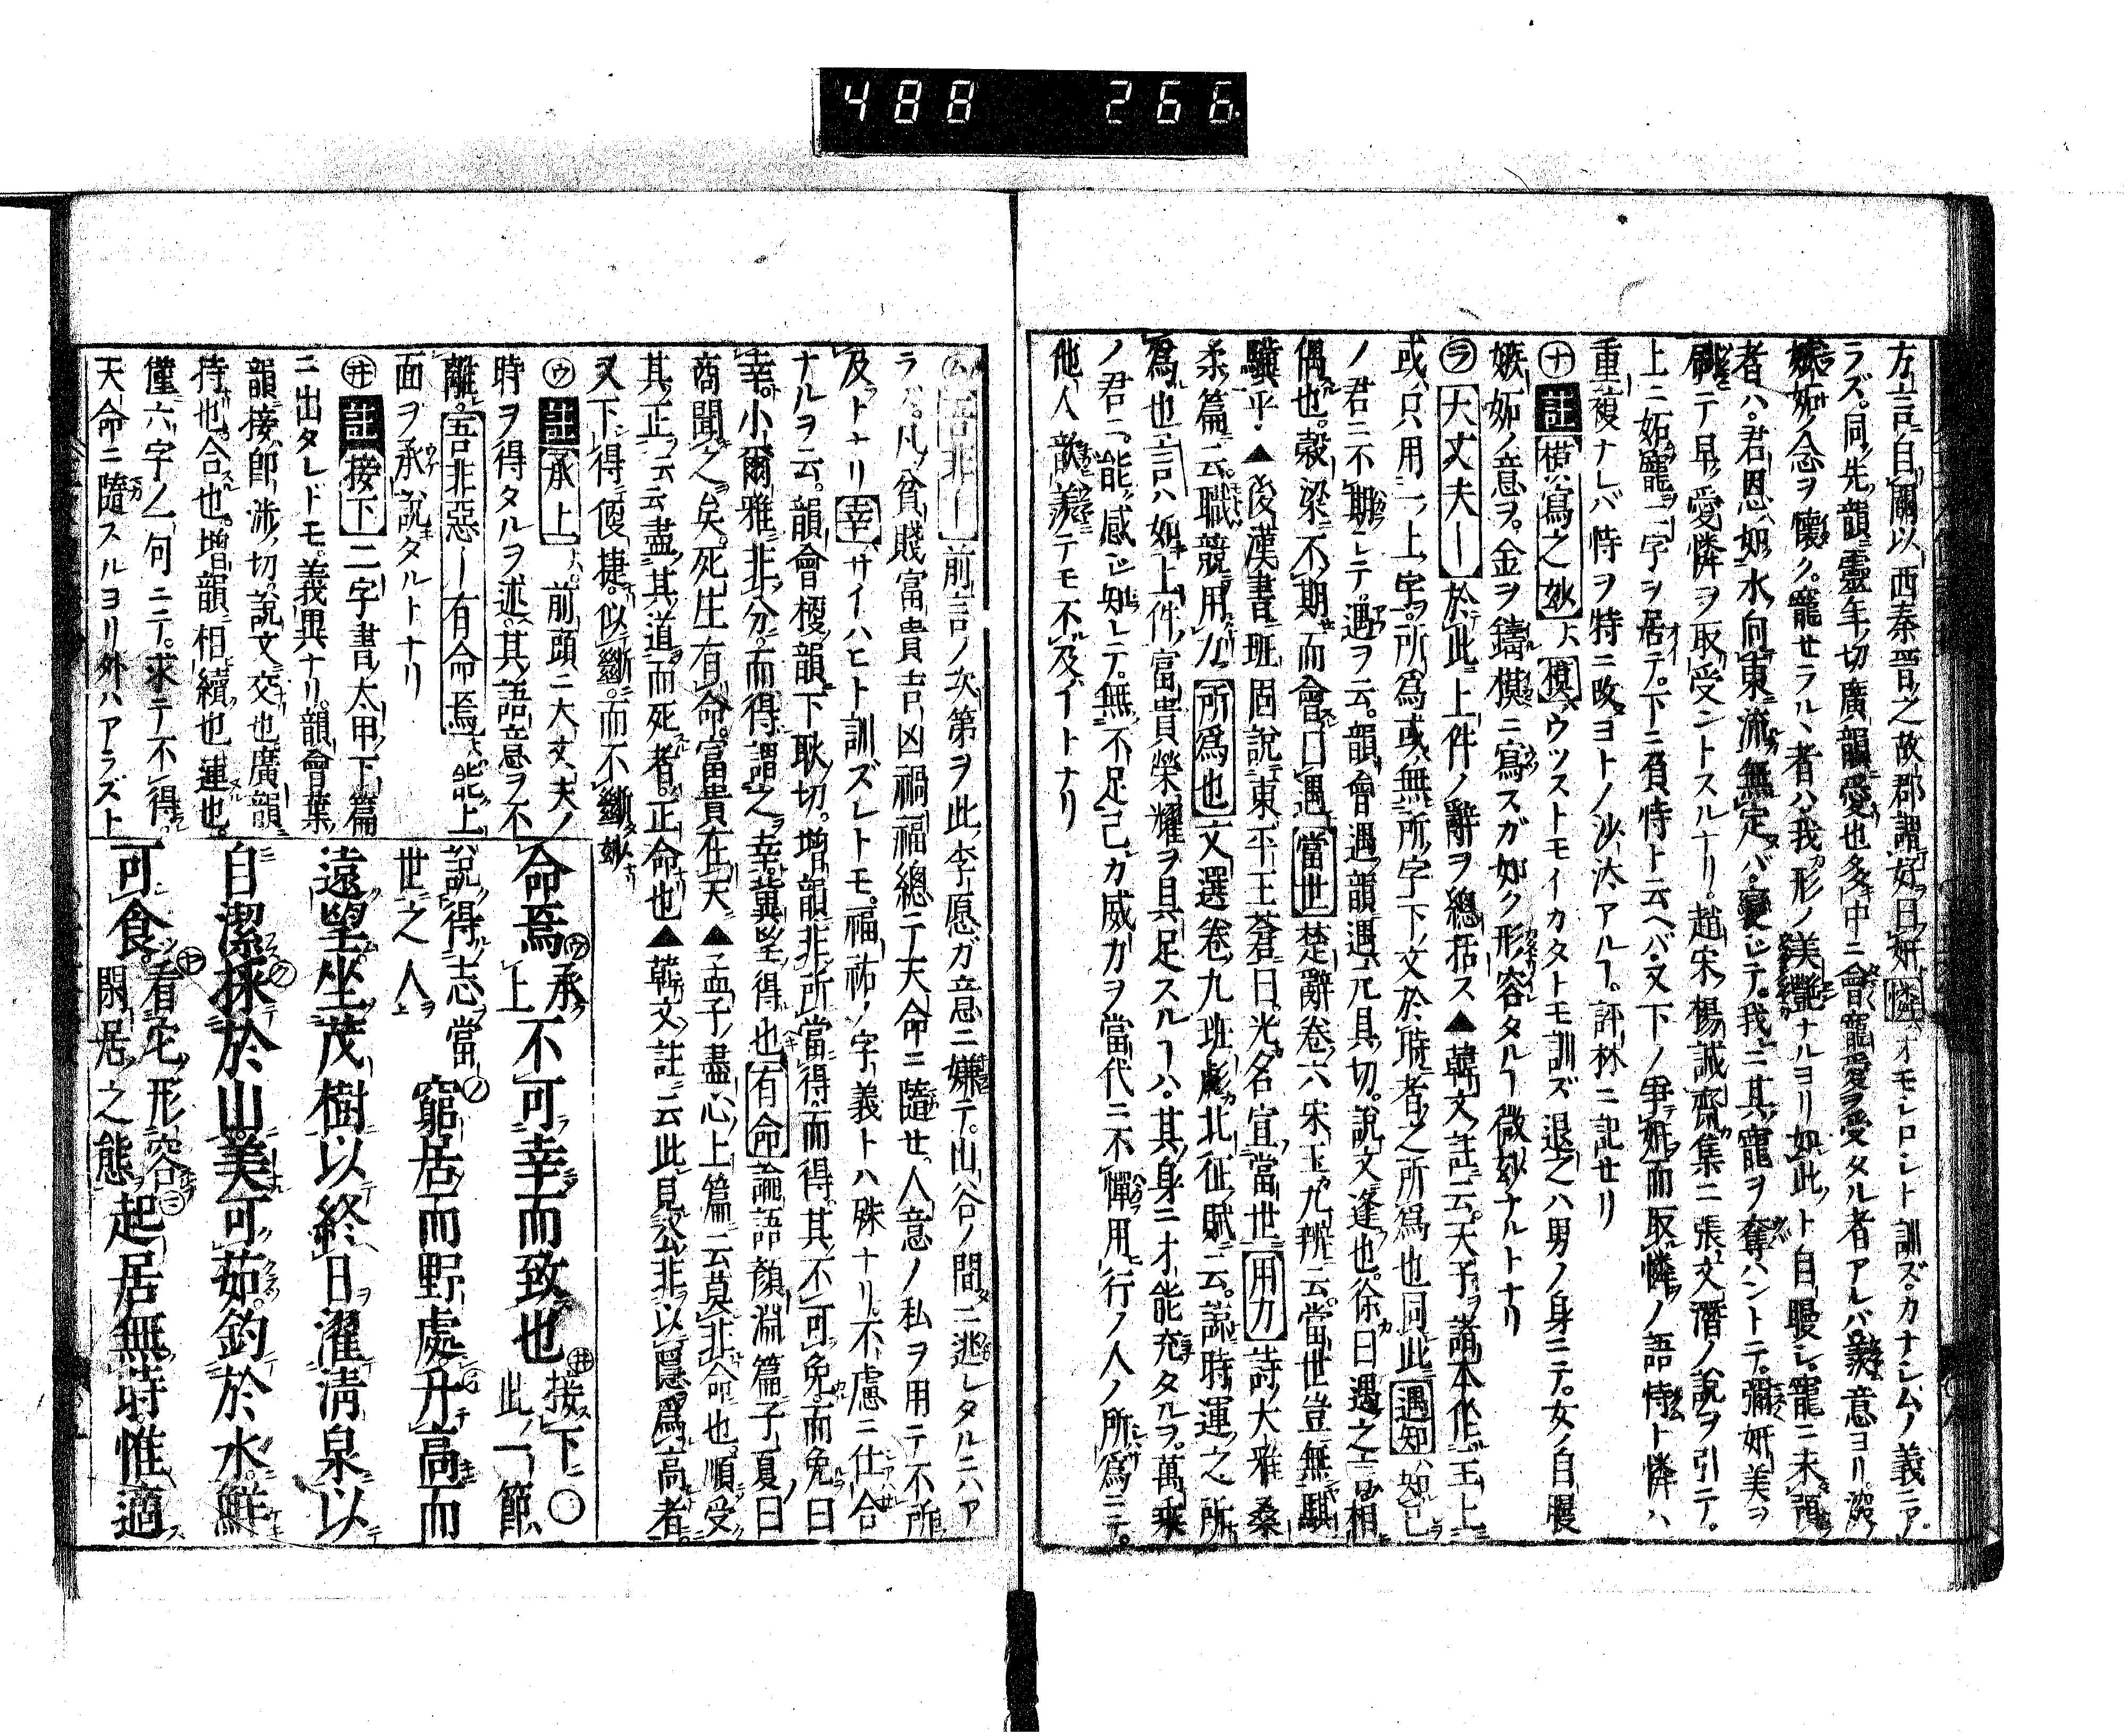 488 266
方言自關以西秦晉之故都謂好曰妍憐オモシロシト訓ズカナシムノ義ニア
ラズ同先韻靈年切廣韻愛也多中ニ會寵愛ヲ受タル者アレバ羨意ヨリ
嫉妬ノ念ヲ懷ク寵セラルヽ者ハ我形ノ美艷ナルヨリ如此ト自
者ハ君恩如水向東流無定バ變ジテ我ニ其寵ヲ奪ハントテ彌妍美ヲ
テ早愛憐ヲ取受ントスルナリ趙宋楊誠齋集ニ張文潛ノ說ヲ引テ
上ニ妬寵二字ヲ居テ下ニ負恃ト云ヘバ又下ノ爭妍而取憐ノ語恃ト憐ハ
重複ナレバ恃ヲ特ニ改ヨトノ沙汰アルヿ評林ニ記セリ
ナ註模寫之妙下模ウツストモイカタトモ訓ズ退之ハ男ノ身ニテ女ノ自
嫉妬ノ意ヲ金ヲ鑄模ニ寫スガ如ク形容タルヿ微妙ナルトナリ
ラ大丈夫ー於此上件ノ辭ヲ總括ス▲韓文註云天子ヲ諸本作王上
或只用一上字所爲或無所字下文於時者之所爲也同此遇知知己
ノ君ニ不期シテ遇ヲ云韻會遇韻遇元具切說文逢也徐曰遇之言相
偶也穀梁不期而會曰遇當世楚辭卷六宋玉九辨云當世豈無騏
驥乎▲後漢書班固說東平王蒼曰光名宣當世用力詩大雅桑
柔篇云職競用力所爲也文選卷九班彪北征賦云諒時運之所
爲也言ハ如上件富貴榮耀ヲ具足スルヿハ其身ニ才能充タルヲ萬乘
ノ君ニ能感ジ知レテ無不足己ガ威力ヲ當代ニ不憚用行ノ人ノ所爲ニテ
他人歆羨テモ不及イトナリ
ム吾非ー前言ノ次第ヲ此李愿ガ意ニ嫌テ山谷ノ間ニ逃レタルニハア
ラズ凡貧賤富貴吉凶禍福總テ天命ニ隨セ人意ノ私ヲ用テ不所
及トナリ幸サイハヒト訓ズレトモ福祐ノ字義トハ殊ナリ不慮ニ仕合
ナルヲ云韻會梗韻下耿切增韻非所當得而得其不可免而免曰
幸小爾雅非分而得謂之幸冀望得也有命論語顏淵篇子夏曰
商聞之矣死生有命富貴在天▲孟子盡心上篇云莫非命也順受
其正云云盡其道而死者正命也▲韓文註云此見公非以隱爲高者
又下得便捷似斷而不斷妙
ウ註承上前頭ニ大丈夫ノ
時ヲ得タルヲ述其語意ヲ不
離吾非惡ー有命焉能上
面ヲ承說タルトナリ
井註接下二字書太甲下篇
ニ出タレドモ義異ナリ韻會葉
韻接卽涉切說文交也廣韻
持也合也增韻相續也連也
僅六字ノ一句ニテ求テ不得
天命ニ隨スルヨリ外ハアラズト
命焉ウ承上不可幸而致也井接下○此一節
說得志當世之人ノ窮居而野處升高而
遠望坐茂樹以終日濯淸泉以
自潔ク採於山美可茹釣於水鮮
可食ヤ看它形容閑居之態起居無時惟適